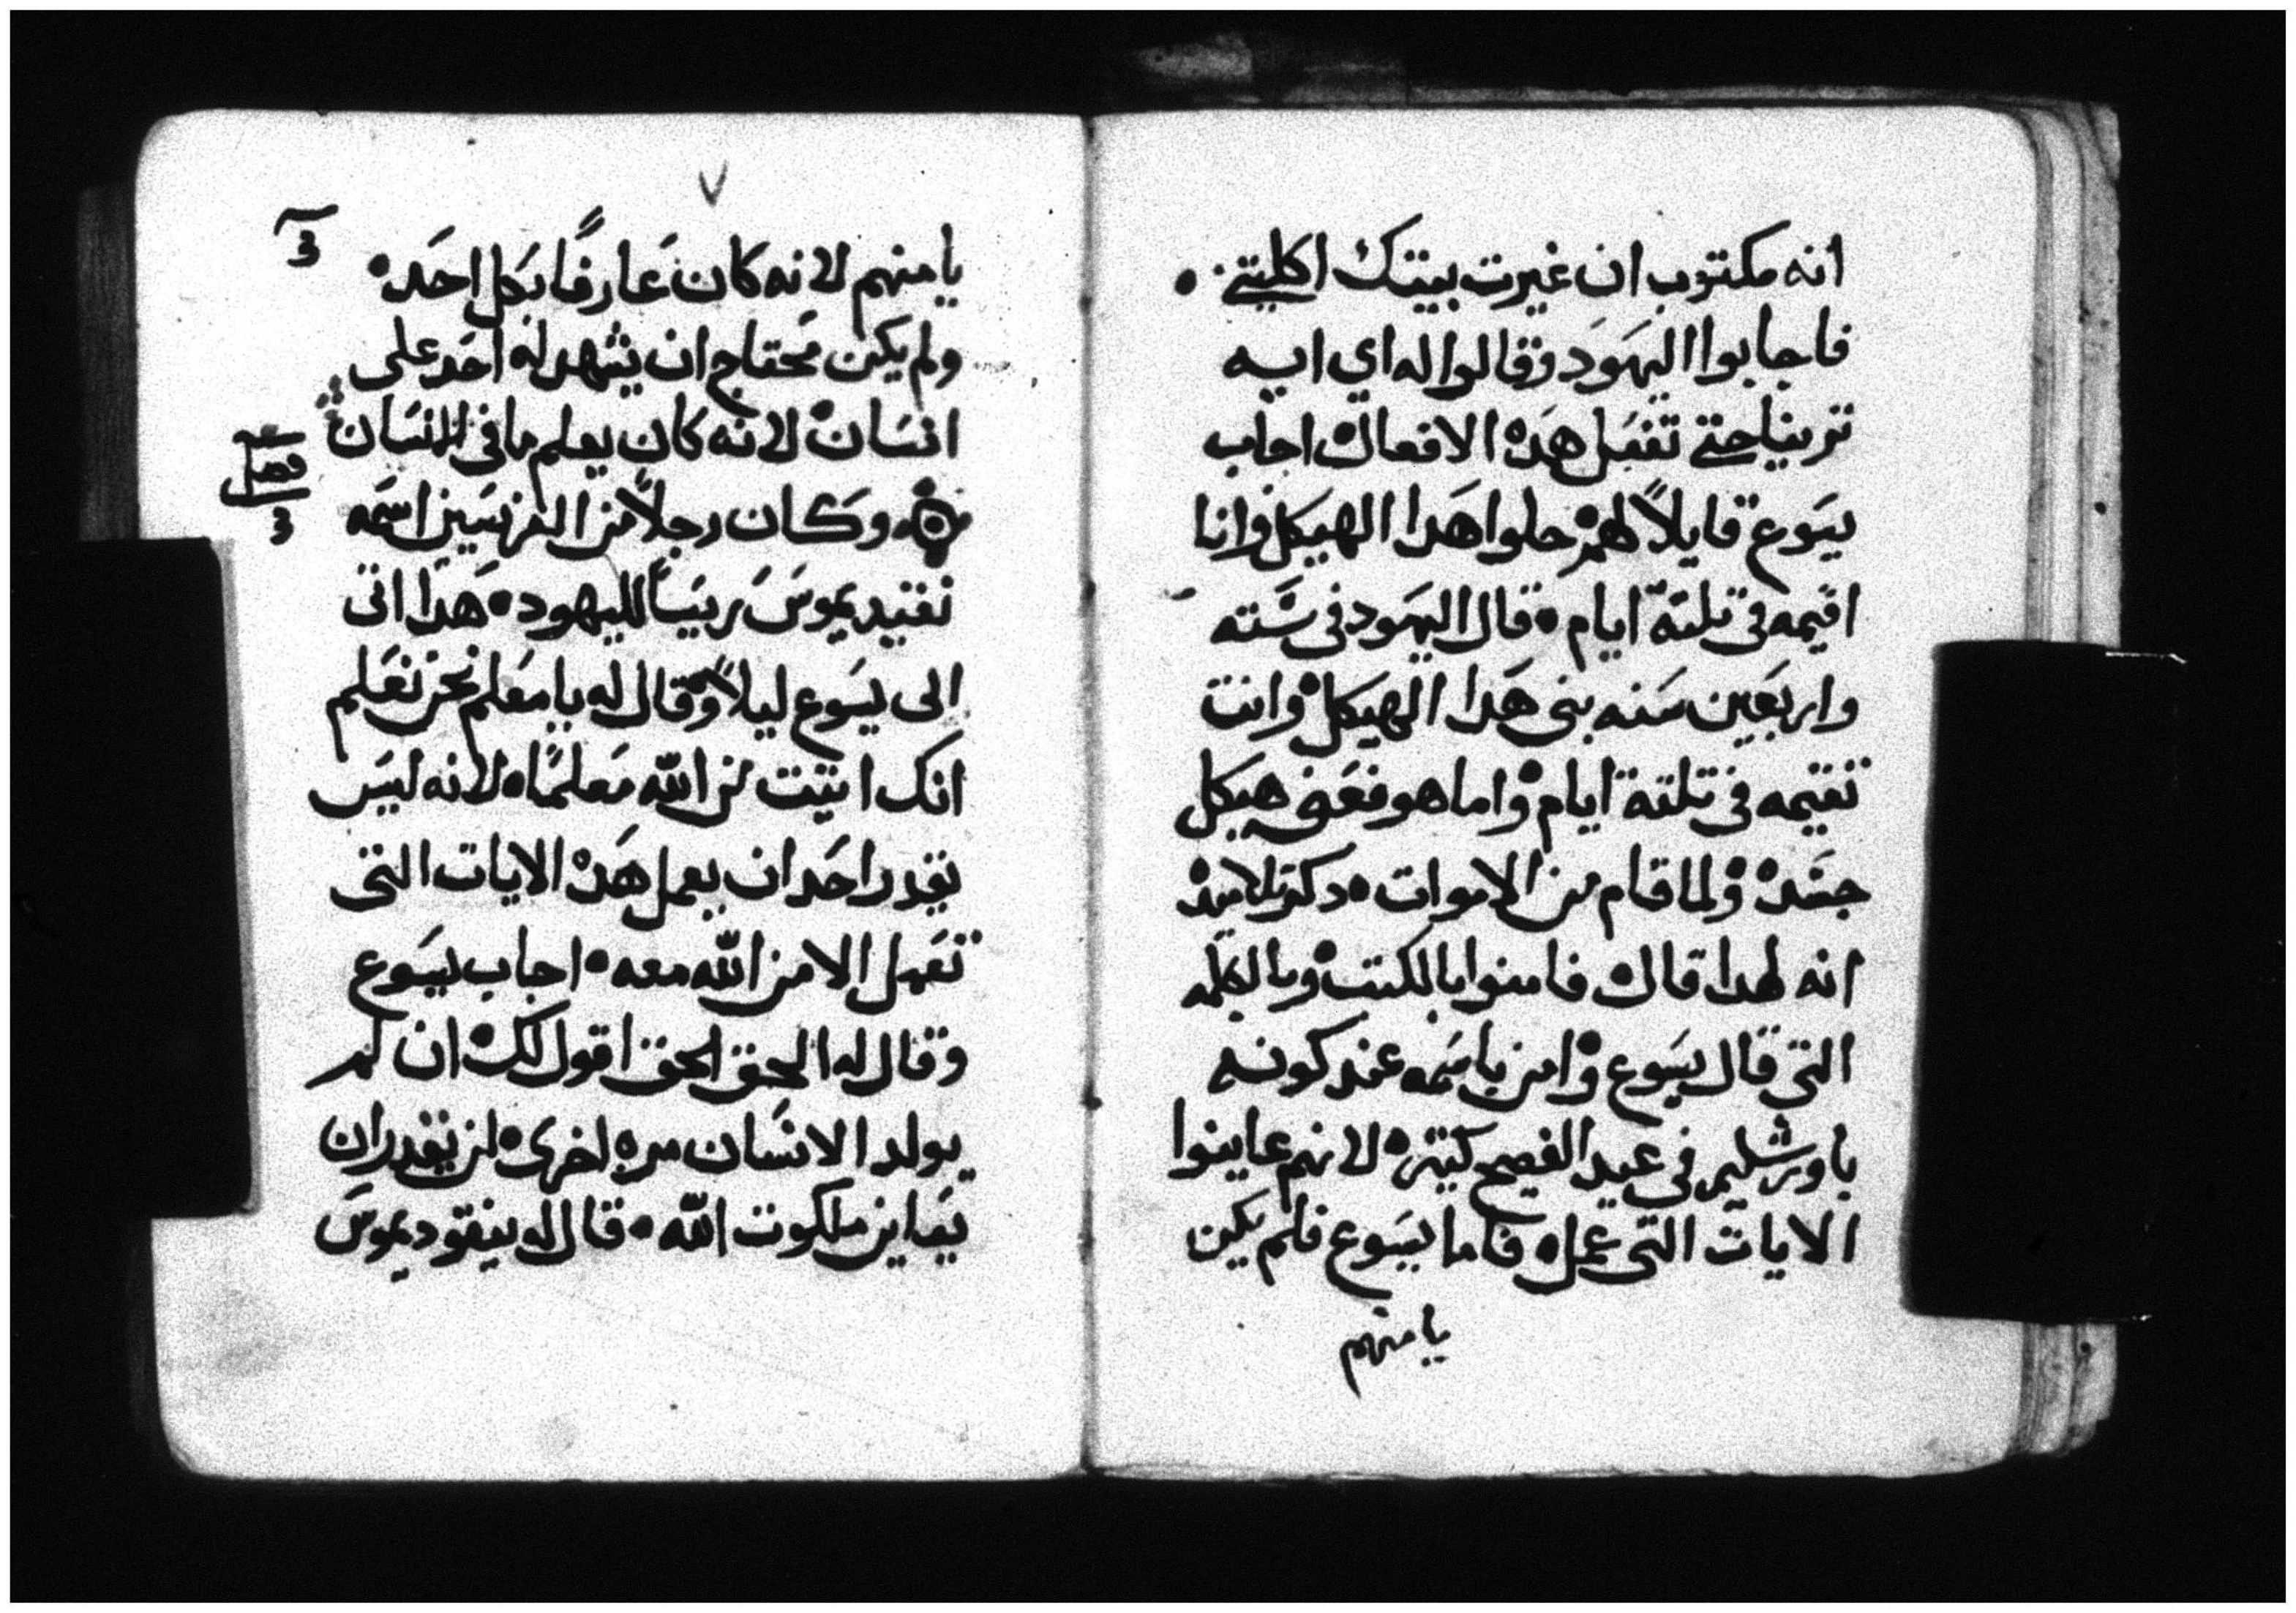 انه مكتوب ان غيرت بيتك اكلتني ۰
فاجابوا اليهود وقالوا له اي ايه
ترينا حتي تفعل هده الافعال اجاب
يسوع قايلاً لهم حلوا هدا الهيكل وانا
اقيمه في تلتة ايام ۰ قال اليهود في سته
واربعين سنه بني هدا الهيكل وانت
تقيمه في تلتة ايام واما هو فعني هيكل
جسده ولما قام من الاموات ۰ دكر تلاميده
انه لهدا قال فامنوا بالكتب وبالكلمه
التي قال يسوع وامن باسمه عند كونه
باورشليم في عيد الفصح كتيره لانهم عاينوا
الايات التي عمل ۰ فاما يسوع فلم يكن
يامنهم
٧
يامنهم لانه كان عارفًا بكل احد ۰
ولم يكن محتاج ان يشهد له احد علي
انسان لانه كان يعلم ما في الانسان
فصل
وكان رجلاً من الفرنسيين اسمه
نقيديموس ريسًا لليهود ۰ هدا اتى
الى يسوع ليلاً وقال له يا معلم نحن نعلم
انك اتيت من الله معلمًا ۰ لانه ليس
يقدر احد ان يعمل هده الايات التى
تعمل الا من الله معه ۰ اجاب يسوع
وقال له الحق الحق اقول لك ان لم
يولد الانسان مره اخرى لن يقدر ان
يعاين ملكوت الله ۰ قال له نيقوديموس